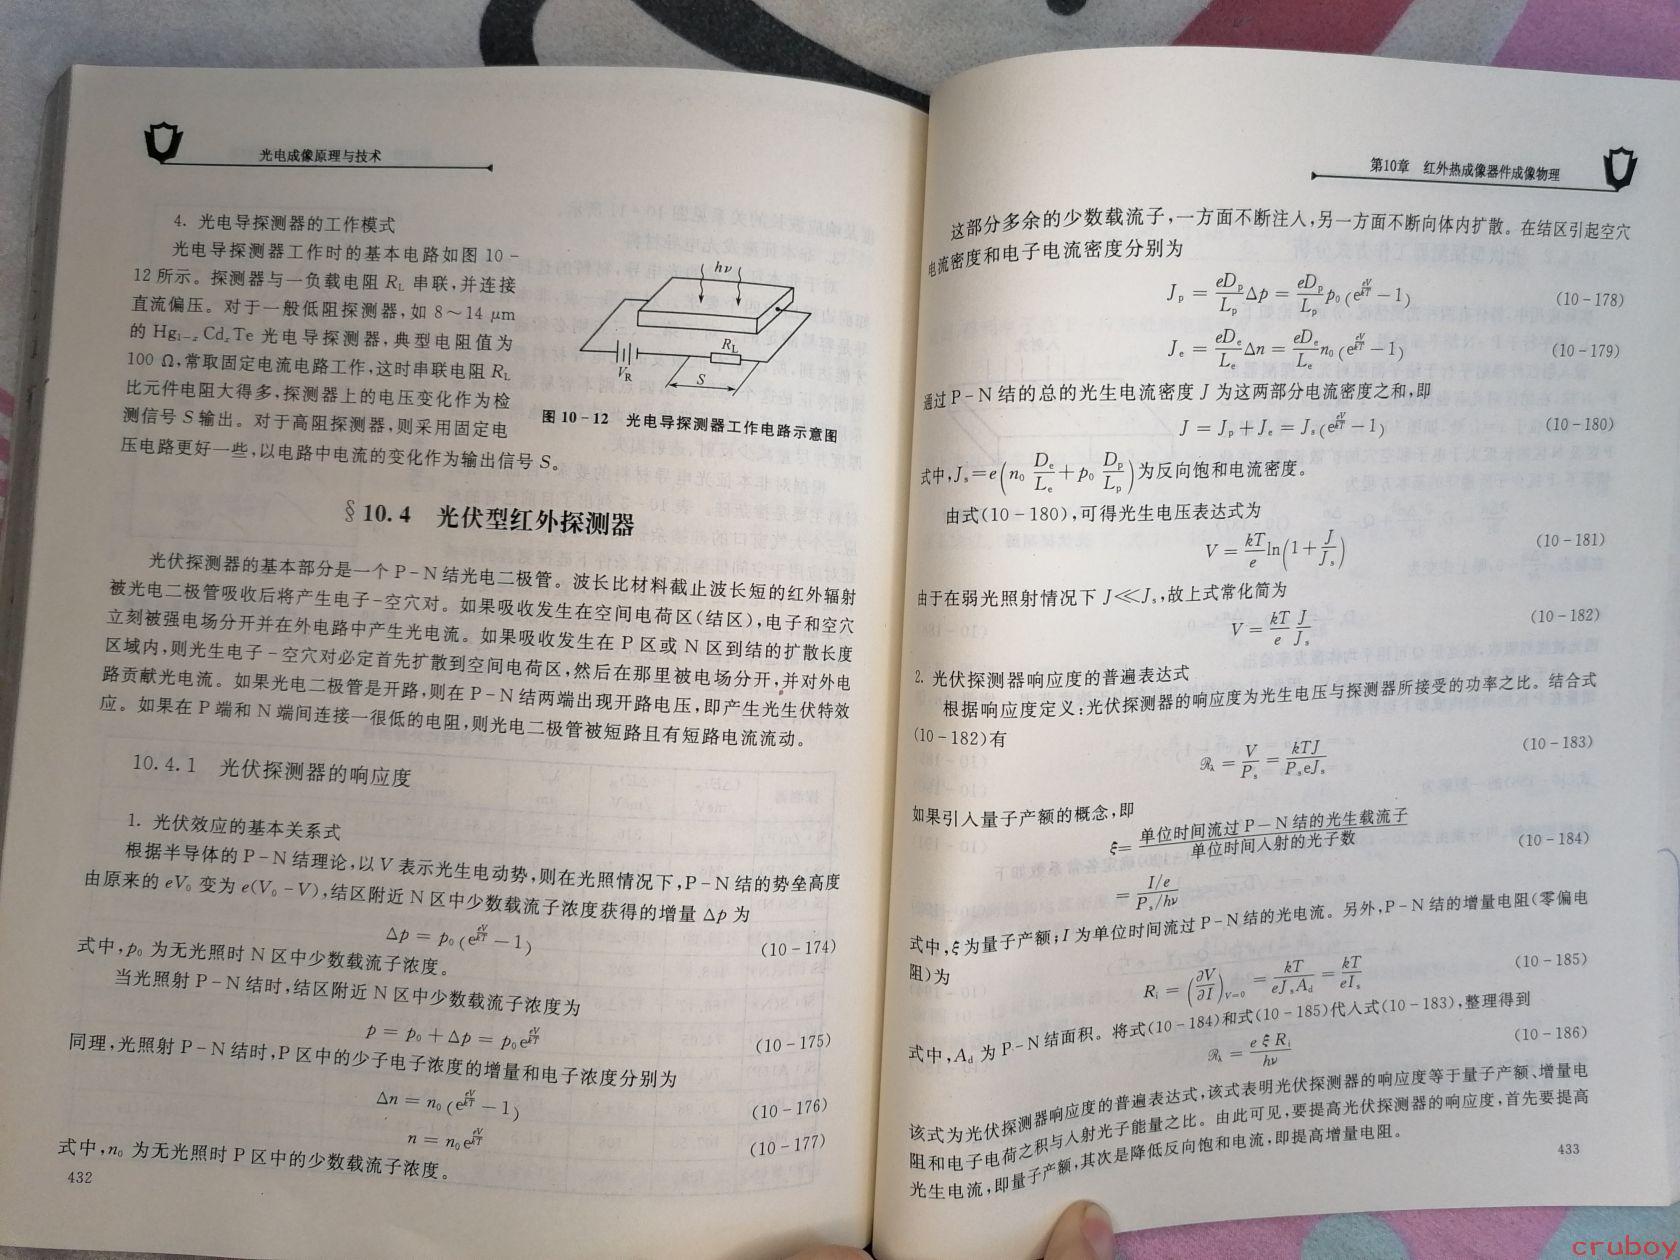 光电成像原理与技术
4. 光电导探测器的工作模式
光电导探测器工作时的基本电路如图 10-
12 所示。探测器与一负载电阻 R_L 串联,并连接
直流偏压。对于一般低阻探测器,如 8～14 μm
的 Hg₁₋ₓCdₓTe 光电导探测器,典型电阻值为
100 Ω,常取固定电流电路工作,这时串联电阻 R_L
比元件电阻大得多,探测器上的电压变化作为检
测信号 S 输出。对于高阻探测器,则采用固定电
压电路更好一些,以电路中电流的变化作为输出信号 S。
hν
R_L
V_R
S
图 10-12 光电导探测器工作电路示意图
§10.4 光伏型红外探测器
光伏探测器的基本部分是一个 P-N 结光电二极管。波长比材料截止波长短的红外辐射
被光电二极管吸收后将产生电子-空穴对。如果吸收发生在空间电荷区(结区),电子和空穴
立刻被强电场分开并在外电路中产生光电流。如果吸收发生在 P 区或 N 区到结的扩散长度
区域内,则光生电子-空穴对必定首先扩散到空间电荷区,然后在那里被电场分开,并对外电
路贡献光电流。如果光电二极管是开路,则在 P-N 结两端出现开路电压,即产生光生伏特效
应。如果在 P 端和 N 端间连接一很低的电阻,则光电二极管被短路且有短路电流流动。
10.4.1 光伏探测器的响应度
1. 光伏效应的基本关系式
根据半导体的 P-N 结理论,以 V 表示光生电动势,则在光照情况下,P-N 结的势垒高度
由原来的 eV₀ 变为 e(V₀-V),结区附近 N 区中少数载流子浓度获得的增量 Δp 为
Δp = p₀(e^{eV/kT}-1) (10-174)
式中,p₀ 为无光照时 N 区中少数载流子浓度。
当光照射 P-N 结时,结区附近 N 区中少数载流子浓度为
p = p₀+Δp = p₀e^{eV/kT} (10-175)
同理,光照射 P-N 结时,P 区中的少子电子浓度的增量和电子浓度分别为
Δn = n₀(e^{eV/kT}-1) (10-176)
n = n₀e^{eV/kT} (10-177)
式中,n₀ 为无光照时 P 区中的少数载流子浓度。
432
第10章 红外热成像器件成像物理
这部分多余的少数载流子,一方面不断注入,另一方面不断向体内扩散。在结区引起空穴
电流密度和电子电流密度分别为
J_p = eD_p/L_p Δp = eD_p/L_p p₀(e^{eV/kT}-1) (10-178)
J_e = eD_e/L_e Δn = eD_e/L_e n₀(e^{eV/kT}-1) (10-179)
通过 P-N 结的总的光生电流密度 J 为这两部分电流密度之和,即
J = J_p+J_e = J_s(e^{eV/kT}-1) (10-180)
式中,J_s=e(n₀ D_e/L_e + p₀ D_p/L_p)为反向饱和电流密度。
由式(10-180),可得光生电压表达式为
V = kT/e ln(1+J/J_s) (10-181)
由于在弱光照射情况下 J≪J_s,故上式常化简为
V = kT/e J/J_s (10-182)
2. 光伏探测器响应度的普遍表达式
根据响应度定义:光伏探测器的响应度为光生电压与探测器所接受的功率之比。结合式
(10-182)有
ℛ_λ = V/P_s = kTJ/P_s eJ_s (10-183)
如果引入量子产额的概念,即
ξ= 单位时间流过 P-N 结的光生载流子/单位时间入射的光子数 (10-184)
= I/e / P_s/hν
式中,ξ 为量子产额;I 为单位时间流过 P-N 结的光电流。另外,P-N 结的增量电阻(零偏电
阻)为
R_i = (∂V/∂I)_{V=0} = kT/eJ_sA_d = kT/eI_s (10-185)
式中,A_d 为 P-N 结面积。将式(10-184)和式(10-185)代入式(10-183),整理得到
ℛ_λ = eξR_i/hν (10-186)
该式为光伏探测器响应度的普遍表达式,该式表明光伏探测器的响应度等于量子产额、增量电
阻和电子电荷之积与入射光子能量之比。由此可见,要提高光伏探测器的响应度,首先要提高
光生电流,即量子产额,其次是降低反向饱和电流,即提高增量电阻。
433
cruboy